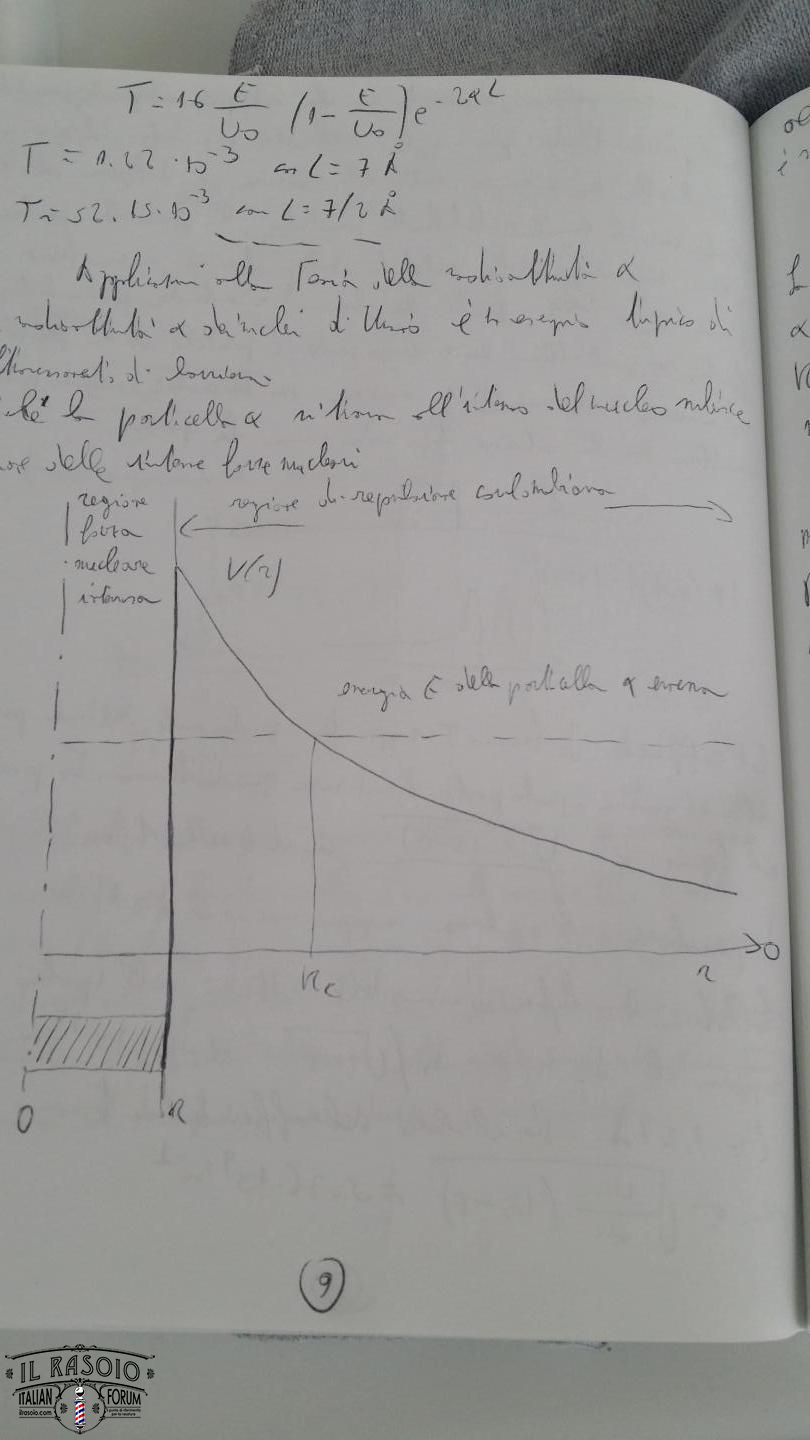 T = 16 E/U₀ (1 - E/U₀) e^-2αL
T = 1.22 · 10⁻³ con L = 7 Å
T = 52.15 · 10⁻³ con L = 7/2 Å
Applicazioni alla Teoria della radioattività α
radioattività α dei nuclei di è un esempio tipico di
di barriera
la particella α si trova all'interno del nucleo subisce
delle intense forze nucleari
regione
forza
nucleare
intensa
regione di repulsione coulombiana
V(r)
energia E della particella α emessa
Rc
r
0
R
9
IL RASOIO
ITALIAN FORUM
ilrasoio.com